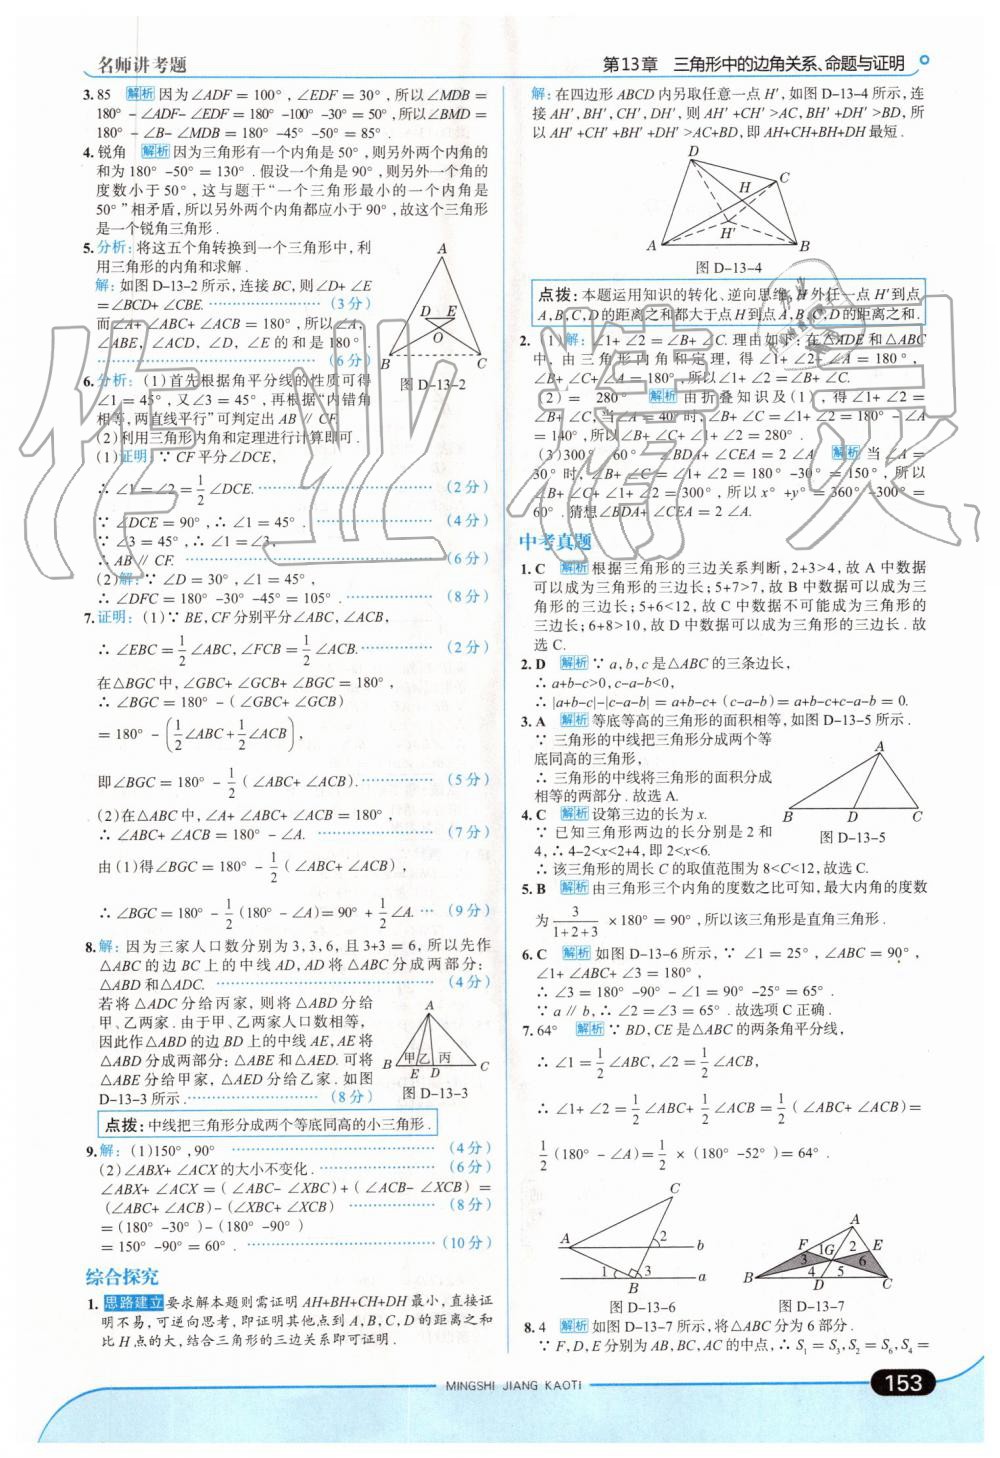 名师讲考题
第13章 三角形中的边角关系、命题与证明
3.85 解析 因为∠ADF = 100°,∠EDF = 30°,所以∠MDB =
180° -∠ADF-∠EDF = 180° -100° -30° = 50°,所以∠BMD =
180° -∠B-∠MDB = 180° -45° -50° = 85°.
4.锐角 解析 因为三角形有一个内角是50°,则另外两个内角的
和为180° -50° = 130°.假设一个角是90°,则另外一个角的
度数小于50°,这与题干“一个三角形最小的一个内角是
50°”相矛盾,所以另外两个内角都应小于90°,故这个三角形
是一个锐角三角形.
5.分析:将这五个角转换到一个三角形中,利
用三角形的内角和求解.
解:如图D-13-2所示,连接BC,则∠D+∠E
=∠BCD+∠CBE. (3分)
而∠A+∠ABC+∠ACB = 180°,所以∠A,
∠ABE,∠ACD,∠D,∠E的和是180°.
(6分)
A
D E
O
B C
图D-13-2
6.分析:(1)首先根据角平分线的性质可得
∠1 = 45°,又∠3 = 45°,再根据“内错角
相等,两直线平行”可判定出AB∥CF.
(2)利用三角形内角和定理进行计算即可.
(1)证明:∵CF平分∠DCE,
∴∠1 =∠2 = 1/2∠DCE. (2分)
∵∠DCE = 90°,∴∠1 = 45°. (4分)
∵∠3 = 45°,∴∠1 =∠3,
∴AB∥CF. (6分)
(2)解:∵∠D = 30°,∠1 = 45°,
∴∠DFC = 180° -30° -45° = 105°. (8分)
7.证明:(1)∵BE,CF分别平分∠ABC,∠ACB,
∴∠EBC = 1/2∠ABC,∠FCB = 1/2∠ACB. (2分)
在△BGC中,∠GBC+∠GCB+∠BGC = 180°,
∴∠BGC = 180° -(∠GBC+∠GCB)
= 180° -(1/2∠ABC+1/2∠ACB),
即∠BGC = 180° -1/2(∠ABC+∠ACB). (5分)
(2)在△ABC中,∠A+∠ABC+∠ACB = 180°,
∴∠ABC+∠ACB = 180° -∠A. (7分)
由(1)得∠BGC = 180° -1/2(∠ABC+∠ACB),
∴∠BGC = 180° -1/2(180° -∠A)= 90° +1/2∠A. (9分)
8.解:因为三家人口数分别为3,3,6,且3+3 = 6,所以先作
△ABC的边BC上的中线AD,AD将△ABC分成两部分:
△ABD和△ADC. (4分)
若将△ADC分给丙家,则将△ABD分给
甲、乙两家.由于甲、乙两家人口数相等,
因此作△ABD的边BD上的中线AE,AE将
△ABD分成两部分:△ABE和△AED.可将
△ABE分给甲家,△AED分给乙家.如图
D-13-3所示. (8分)
A
甲 乙 丙
B E D C
图D-13-3
点拨:中线把三角形分成两个等底同高的小三角形.
9.解:(1)150°,90° (4分)
(2)∠ABX+∠ACX的大小不变化. (6分)
∠ABX+∠ACX =(∠ABC-∠XBC)+(∠ACB-∠XCB)=
(∠ABC+∠ACB)-(∠XBC+∠XCB) (8分)
=(180° -30°)-(180° -90°)
= 150° -90° = 60°. (10分)
综合探究
1.思路建立 要求解本题则需证明AH+BH+CH+DH最小,直接证
明不易,可逆向思考,即证明其他点到A,B,C,D的距离之和
比H点的大,结合三角形的三边关系即可证明.
解:在四边形ABCD内另取任意一点H′,如图D-13-4所示,连
接AH′,BH′,CH′,DH′,则AH′+CH′>AC,BH′+DH′>BD,所
以AH′+CH′+BH′+DH′>AC+BD,即AH+CH+BH+DH最短.
D
C
H
H′
A B
图D-13-4
点拨:本题运用知识的转化、逆向思维,H外任一点H′到点
A,B,C,D的距离之和都大于点H到点A,B,C,D的距离之和.
2.(1)解:∠1+∠2 =∠B+∠C.理由如下:在△ADE和△ABC
中,由三角形内角和定理,得∠1+∠2+∠A = 180°,
∠B+∠C+∠A = 180°,所以∠1+∠2 =∠B+∠C.
(2) = 280° 解析 由折叠知识及(1),得∠1+∠2 =
∠B+∠C,当∠A = 40°时,∠B+∠C =∠1+∠2 = 180° -∠A
= 140°,所以∠B+∠C+∠1+∠2 = 280°.
(3)300° 60° ∠BDA+∠CEA = 2∠A 解析 当∠A =
30°时,∠B+∠C =∠1+∠2 = 180° -30° = 150°,所以
∠B+∠C+∠1+∠2 = 300°,所以x°+y° = 360° -300° =
60°.猜想∠BDA+∠CEA = 2∠A.
中考真题
1.C 解析 根据三角形的三边关系判断,2+3>4,故A中数据
可以成为三角形的三边长;5+7>7,故B中数据可以成为三
角形的三边长;5+6<12,故C中数据不可能成为三角形的
三边长;6+8>10,故D中数据可以成为三角形的三边长.故
选C.
2.D 解析 ∵a,b,c是△ABC的三条边长,
∴a+b-c>0,c-a-b<0,
∴|a+b-c|-|c-a-b| = a+b-c+(c-a-b)= a+b-c+c-a-b = 0.
3.A 解析 等底等高的三角形的面积相等,如图D-13-5所示.
∵三角形的中线把三角形分成两个等
底同高的三角形,
∴三角形的中线将三角形的面积分成
相等的两部分.故选A.
A
B D C
图D-13-5
4.C 解析 设第三边的长为x.
∵已知三角形两边的长分别是2和
4,∴4-2<x<2+4,即2<x<6.
∴该三角形的周长C的取值范围为8<C<12,故选C.
5.B 解析 由三角形三个内角的度数之比可知,最大内角的度数
为3/(1+2+3)×180° = 90°,所以该三角形是直角三角形.
6.C 解析 如图D-13-6所示,∵∠1 = 25°,∠ABC = 90°,
∠1+∠ABC+∠3 = 180°,
∴∠3 = 180° -90° -∠1 = 180° -90° -25° = 65°.
∵a∥b,∴∠2 =∠3 = 65°.故选项C正确.
7.64° 解析 ∵BD,CE是△ABC的两条角平分线,
∴∠1 = 1/2∠ABC,∠2 = 1/2∠ACB,
∴∠1+∠2 = 1/2∠ABC+1/2∠ACB = 1/2(∠ABC+∠ACB)=
1/2(180° -∠A)= 1/2×(180° -52°)= 64°.
C
A 2 b
1 3 a
B
图D-13-6
A
F 1 G 2 E
3 6
B 4 5 C
D
图D-13-7
8.4 解析 如图D-13-7所示,将△ABC分为6部分.
∵F,D,E分别为AB,BC,AC的中点,∴S₁ = S₃,S₂ = S₆,S₄ =
MINGSHI JIANG KAOTI
153
作业精灵